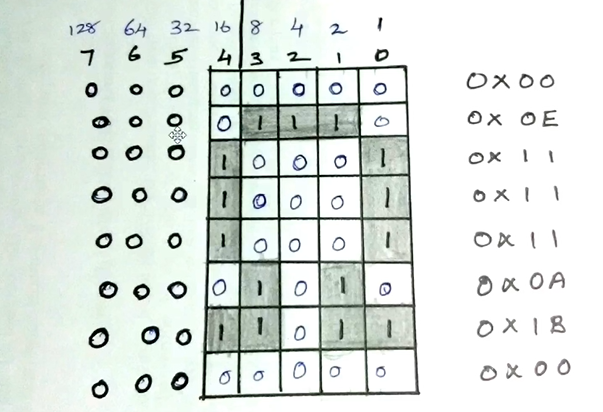 128 64 32 16 8 4 2 1
7 6 5 4 3 2 1 0
0 0 0 0 0 0 0 0 0x00
0 0 0 0 1 1 1 0 0x 0E
0 0 0 1 0 0 0 1 0x 11
0 0 0 1 0 0 0 1 0x 11
0 0 0 1 0 0 0 1 0x 11
0 0 0 0 1 0 1 0 0x 0A
0 0 0 1 1 0 1 1 0x1B
0 0 0 0 0 0 0 0 0x00